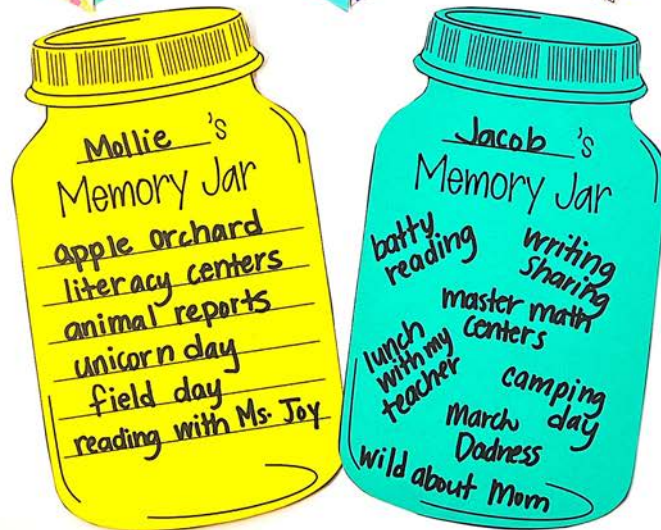 Mollie's
Memory Jar
apple orchard
literacy centers
animal reports
unicorn day
field day
reading with Ms. Joy
Jacob's
Memory Jar
batty
reading
writing
sharing
master math
centers
lunch
with my
teacher
camping
day
March
Dadness
wild about Mom